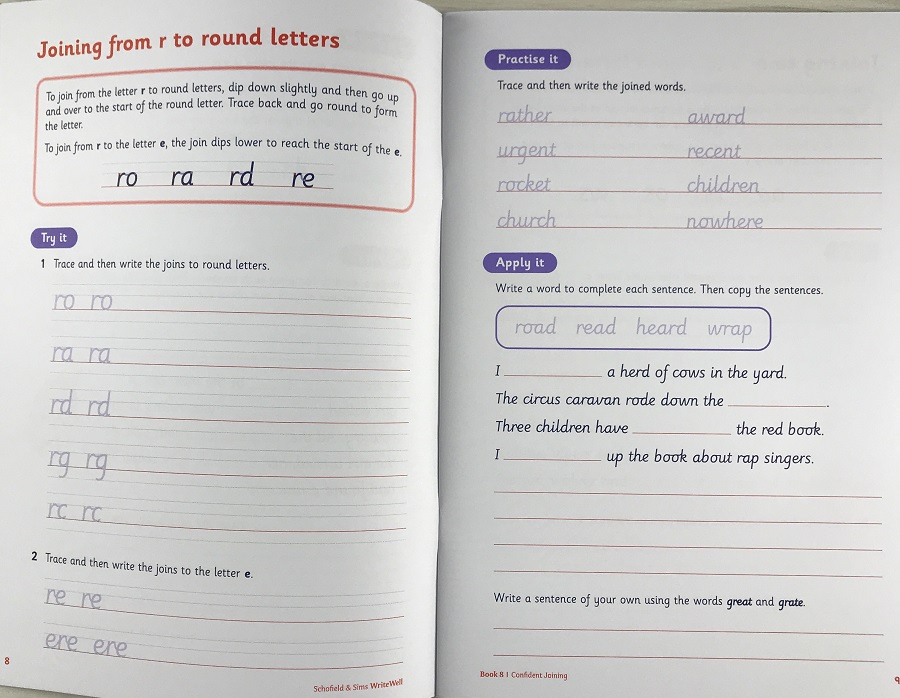 Joining from r to round letters
To join from the letter r to round letters, dip down slightly and then go up
and over to the start of the round letter. Trace back and go round to form
the letter.
To join from r to the letter e, the join dips lower to reach the start of the e.
ro ra rd re
Try it
1 Trace and then write the joins to round letters.
ro ro
ra ra
rd rd
rg rg
rc rc
2 Trace and then write the joins to the letter e.
re re
ere ere
8
Schofield & Sims WriteWell
Practise it
Trace and then write the joined words.
rather award
urgent recent
rocket children
church nowhere
Apply it
Write a word to complete each sentence. Then copy the sentences.
road read heard wrap
I ____________ a herd of cows in the yard.
The circus caravan rode down the ____________.
Three children have ____________ the red book.
I ____________ up the book about rap singers.
Write a sentence of your own using the words great and grate.
Book 8 | Confident Joining
9